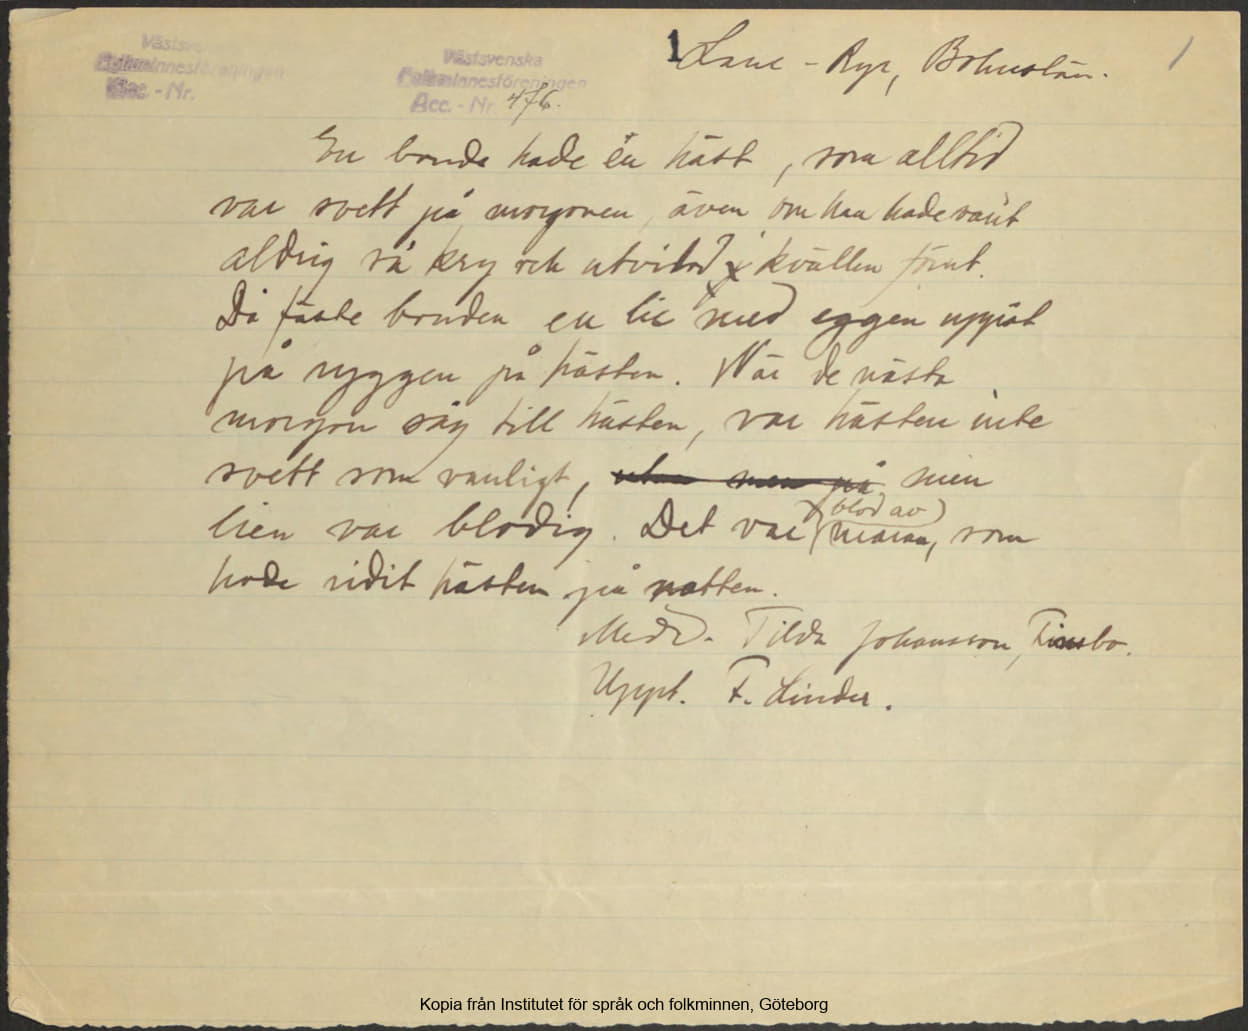 Västsvenska
Folkminnesföreningen
Acc. - Nr.
Västsvenska
Folkminnesföreningen
Acc. - Nr. 476.
1 Lane - Ryr, Bohuslän. 1
En bonde hade en häst, som alltid
var svett på morgonen, även om han hade varit
aldrig så kry och utvilad kvällen förut.
Då fäste bonden en lie med eggen uppåt
på ryggen på hästen. När de nästa
morgon såg till hästen, var hästen inte
svett som vanligt, utan men på men
lien var blodig. Det var (blod av)
maran, som
hade ridit hästen på natten.
Medd. Tilda Johansson,
Uppt. F. Linder.
Kopia från Institutet för språk och folkminnen, Göteborg